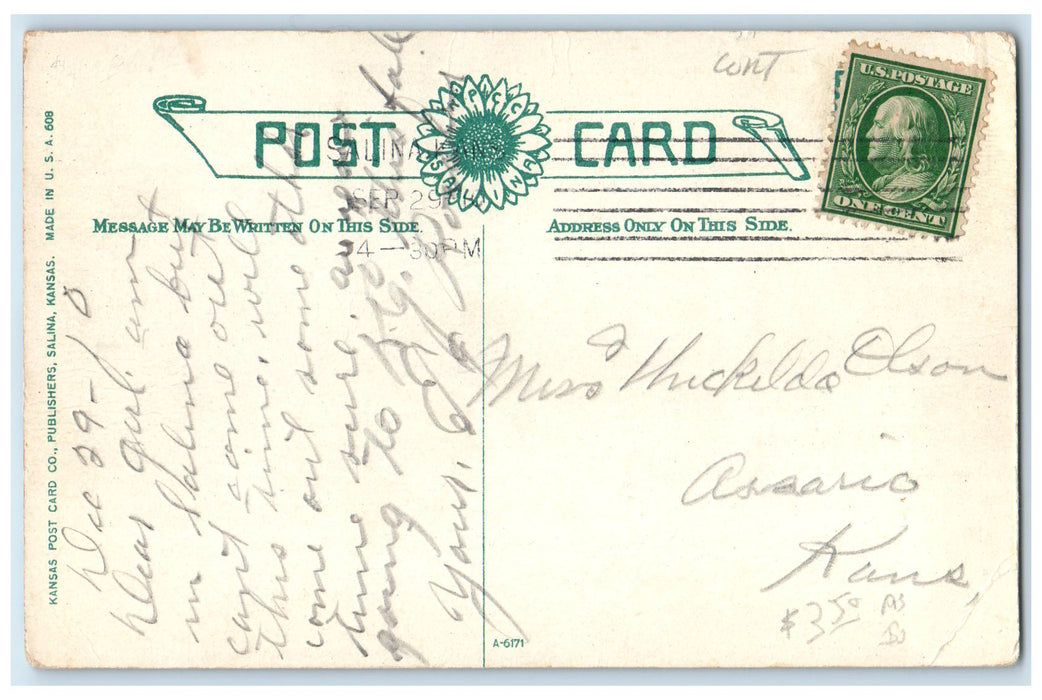 cont
U.S. POSTAGE
ONE CENT
POST CARD
P.C.C.
SALINA
SALINA, KANS.
SEP 29
4-30PM
MESSAGE MAY BE WRITTEN ON THIS SIDE.
ADDRESS ONLY ON THIS SIDE.
KANSAS POST CARD CO., PUBLISHERS, SALINA, KANSAS. MADE IN U. S. A. 608
29-10
Dear girl. am
in Salina but
can't come out
this time. will
come out some
time sure. am
going to
Yours,
Miss Olson
Assaria
Kans,
$3.50
A-6171